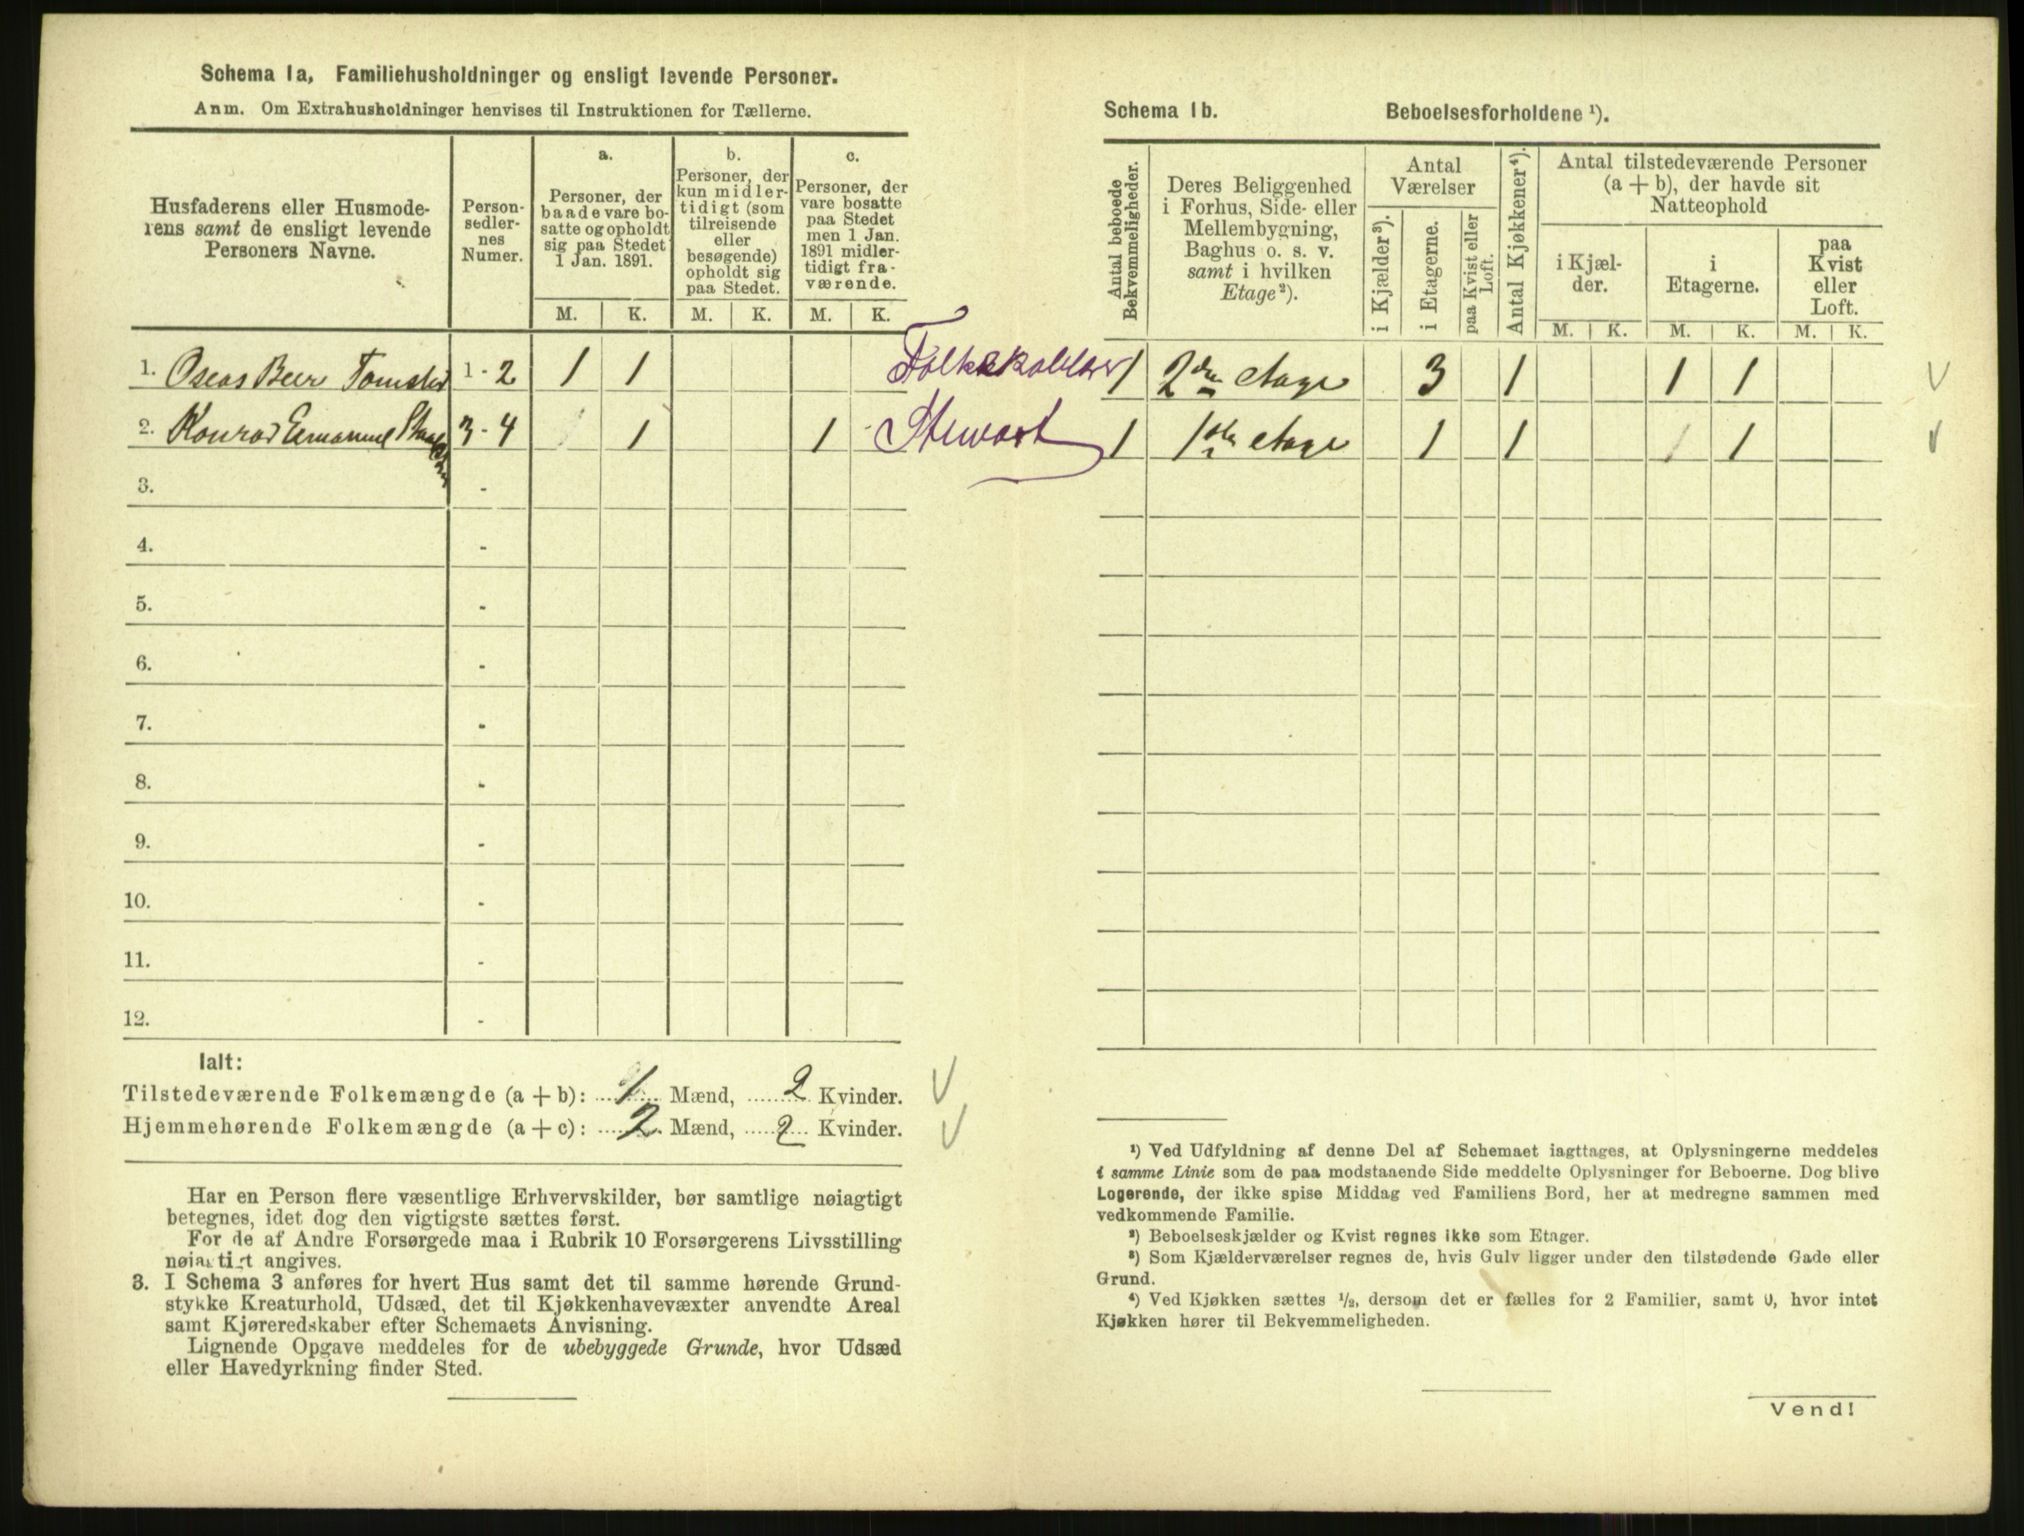 Schema 1a, Familiehusholdninger og ensligt levende Personer.
Anm. Om Extrahusholdninger henvises til Instruktionen for Tællerne.
Husfaderens eller Husmode-
rens samt de ensligt levende
Personers Navne.
Person-
sedler-
nes
Numer.
a.
Personer, der
baade vare bo-
satte og opholdt
sig paa Stedet
1 Jan. 1891.
b.
Personer, der
kun midler-
tidigt (som
tilreisende
eller
besøgende)
opholdt sig
paa Stedet.
c.
Personer, der
vare bosatte
paa Stedet
men 1 Jan.
1891 midler-
tidigt fra-
værende.
M. K. M. K. M. K.
1. Oscar Beer 1 - 2 1 1
2. Konrad Emanuel 3 - 4 1 1 Stewart
3. -
4. -
5. -
6. -
7. -
8. -
9. -
10. -
11. -
12. -
Ialt:
Tilstedeværende Folkemængde (a + b): 1 Mænd, 2 Kvinder.
Hjemmehørende Folkemængde (a + c): 2 Mænd, 2 Kvinder.
Har en Person flere væsentlige Erhvervskilder, bør samtlige nøiagtigt
betegnes, idet dog den vigtigste sættes først.
For de af Andre Forsørgede maa i Rubrik 10 Forsørgerens Livsstilling
nøiagtigt angives.
3. I Schema 3 anføres for hvert Hus samt det til samme hørende Grund-
stykke Kreaturhold, Udsæd, det til Kjøkkenhavevæxter anvendte Areal
samt Kjøreredskaber efter Schemaets Anvisning.
Lignende Opgave meddeles for de ubebyggede Grunde, hvor Udsæd
eller Havedyrkning finder Sted.
Schema 1b. Beboelsesforholdene ¹).
Antal beboede
Bekvemmeligheder.
Deres Beliggenhed
i Forhus, Side- eller
Mellembygning,
Baghus o. s. v.
samt i hvilken
Etage ²).
Antal
Værelser
i Kjælder ³).
i Etagerne.
paa Kvist eller
Loft.
Antal Kjøkkener ⁴).
Antal tilstedeværende Personer
(a + b), der havde sit
Natteophold
i Kjæl-
der.
i
Etagerne.
paa
Kvist
eller
Loft.
M. K. M. K. M. K.
1 2den etage 3 1 1 1
1 1ste etage 1 1 1
¹) Ved Udfyldning af denne Del af Schemaet iagttages, at Oplysningerne meddeles
i samme Linie som de paa modstaaende Side meddelte Oplysninger for Beboerne. Dog blive
Logerende, der ikke spise Middag ved Familiens Bord, her at medregne sammen med
vedkommende Familie.
²) Beboelseskjælder og Kvist regnes ikke som Etager.
³) Som Kjælderværelser regnes de, hvis Gulv ligger under den tilstødende Gade eller
Grund.
⁴) Ved Kjøkken sættes ½, dersom det er fælles for 2 Familier, samt 0, hvor intet
Kjøkken hører til Bekvemmeligheden.
Vend!